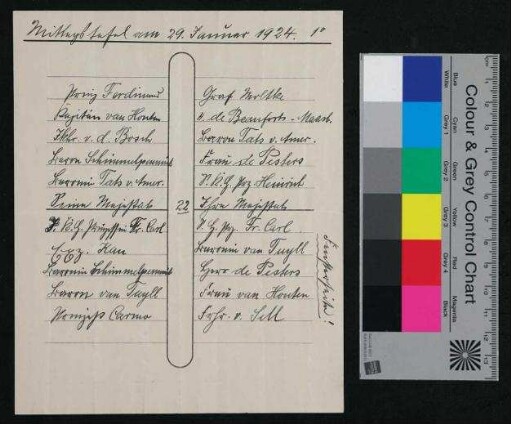 Mittagstafel am 29. Januar 1924. 1°
Prinz Ferdinand
Kapitän van Houten
Jkhr. v. d. Bosch
Baron Schimmelpenninck
Baronin Tats v. Amer.
Seine Majestät
I. K. H. Prinzessin Fr. Carl
Exz. Kan
Baronin Schimmelpenninck
Baron van Tuyll
Prinzess Carmo
22
Graf Moltke
v. de Beaufort - Maash
Baron Tats v. Amer.
Frau de Pesters
Prz. Heinrich
Ihre Majestät
Prz. Fr. Carl
Baronin van Tuyll
Herr de Pesters
Frau van Houten
Frhr. v. Sell
Fensterseite!
Colour & Grey Control Chart
Blue Cyan Green Yellow Red Magenta
White Grey 1 Grey 2 Grey 3 Grey 4 Black